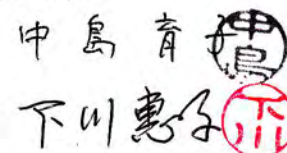 中島育子 中島
下川惠子 下川